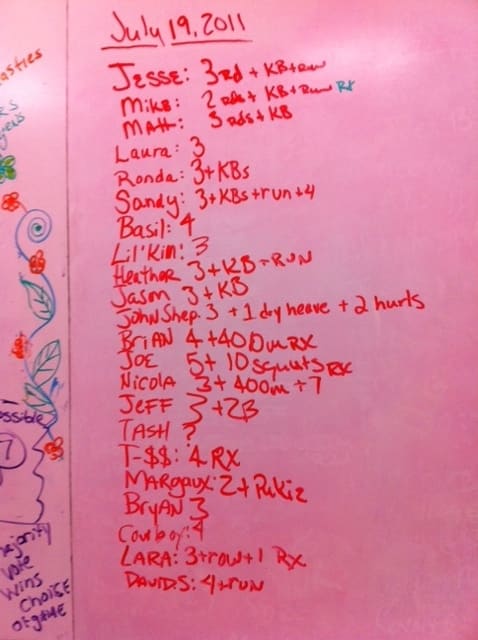 July 19, 2011
JESSE: 3 rd + KB + run
MIKE: 2 rds + KB + Run Rx
Matt: 3 rds + KB
Laura: 3
Ronda: 3 + KBs
Sandy: 3 + KBs + run + 4
Basil: 4
Lil' Kim: 3
Heather 3 + KB + RUN
Jason 3 + KB
JOHN Shep. 3 + 1 dry heave + 2 hurls
BRIAN 4 + 400m RX
JOE 5 + 10 squats RX
NICOLA 3 + 400m + 7
JEFF 3 + 2B
TASH ?
T-$$: 4 RX
MARGAUX: 2 + Pukie
BRYAN 3
Cowboy: 4
LARA: 3 + row + 1 RX
DAVIDS: 4 + run
asties
ossible
7
majority
vote
wins
CHOICE
of game